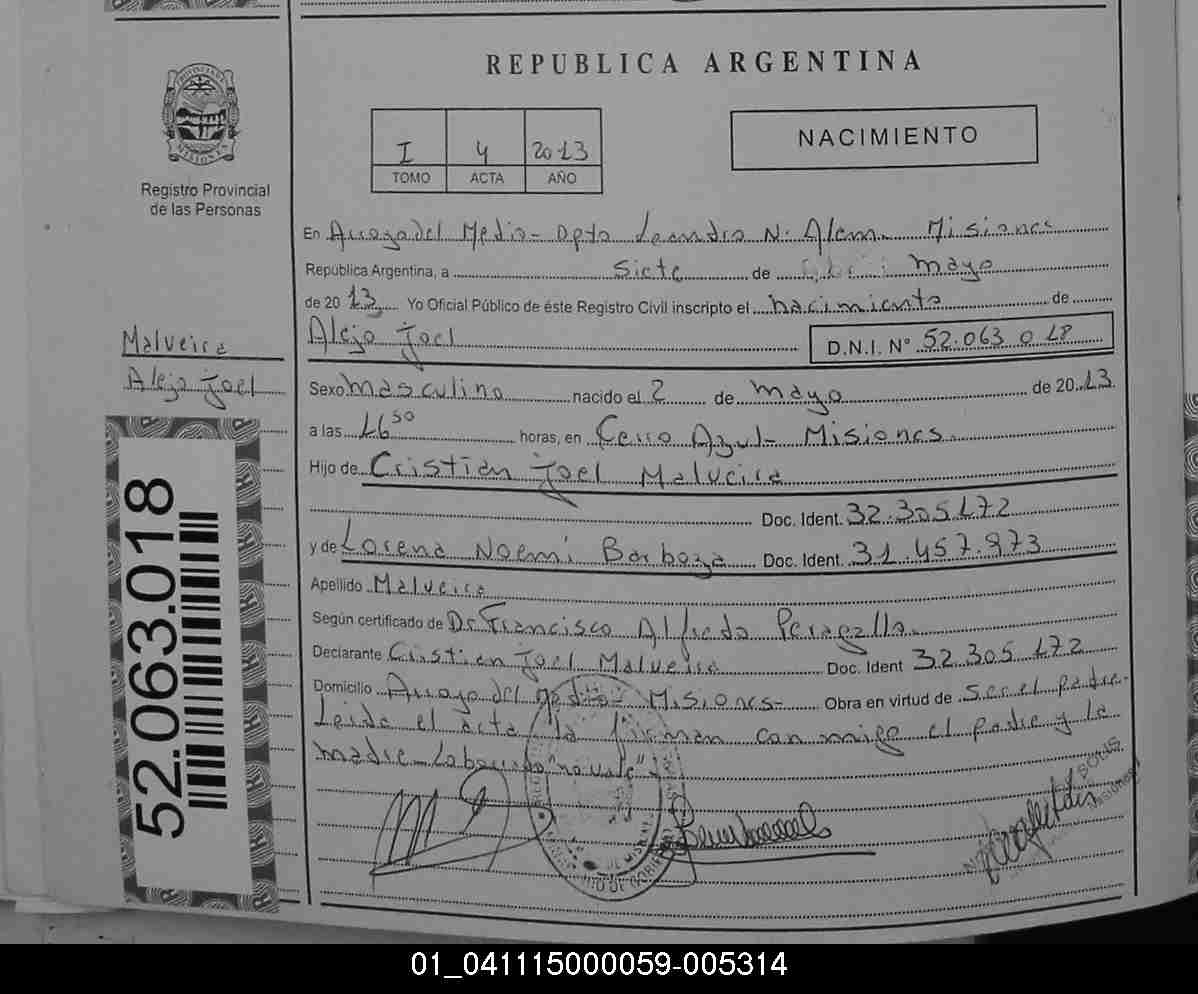 REPUBLICA ARGENTINA
PROVINCIA DE MISIONES
Registro Provincial
de las Personas
I 4 2013
TOMO ACTA AÑO
NACIMIENTO
En Arroyo del Medio - Dpto Leandro N. Alem. Misiones
República Argentina, a siete de mayo
de 2013 Yo Oficial Público de éste Registro Civil inscripto el nacimiento de
Alejo Joel D.N.I. N° 52.063.018
Malveira
Alejo Joel
Sexo masculino nacido el 2 de mayo de 2013
a las 16 30 horas, en Cerro Azul - Misiones
Hijo de Cristian Joel Malveira
Doc. Ident. 32.305.172
y de Lorena Noemi Barboza Doc. Ident. 31.457.973
Apellido Malveira
Según certificado de Dr Francisco Alfredo
Declarante Cristian Joel Malveira Doc. Ident 32.305.172
Domicilio Arroyo del Medio - Misiones - Obra en virtud de ser el padre.
Leida el acta la firman con migo el padre y la
madre "no vale"
52.063.018
01_041115000059-005314